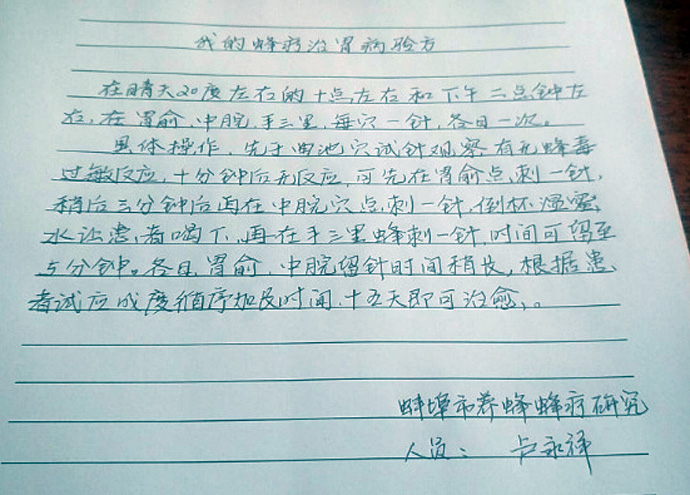 我的蜂疗治胃病验方
在晴天20度左右的十点左右和下午二点钟左
右,在胃俞、中脘、手三里,每穴一针,各日一次。
具体操作,先于曲池穴试针观察,有无蜂毒
过敏反应,十分钟后无反应,可先在胃俞点刺一针,
稍后三分钟后再在中脘穴点刺一针,倒杯温蜜
水让患者喝下,再在手三里蜂刺一针,时间可留至
5分钟。各日胃俞、中脘留针时间稍长,根据患
者试应成度循序加及时间,十五天即可治愈。
蚌埠市养蜂蜂疗研究
人员: 卢永祥